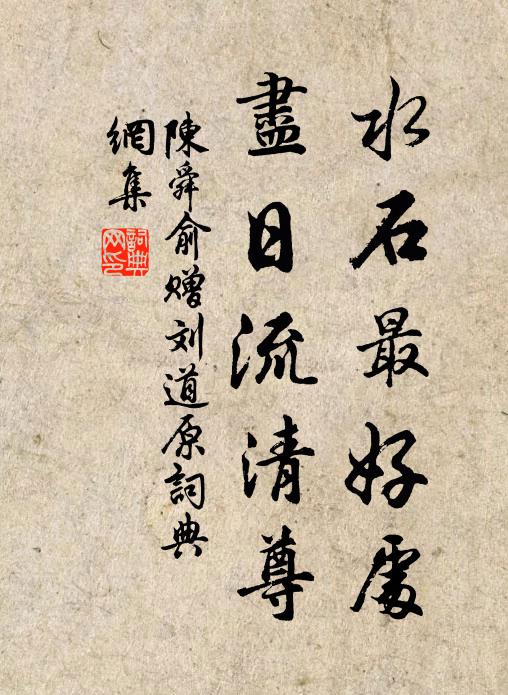 水石最好處
盡日流清尊
陳舜俞贈刘道原詞典
網集
詞典
网印